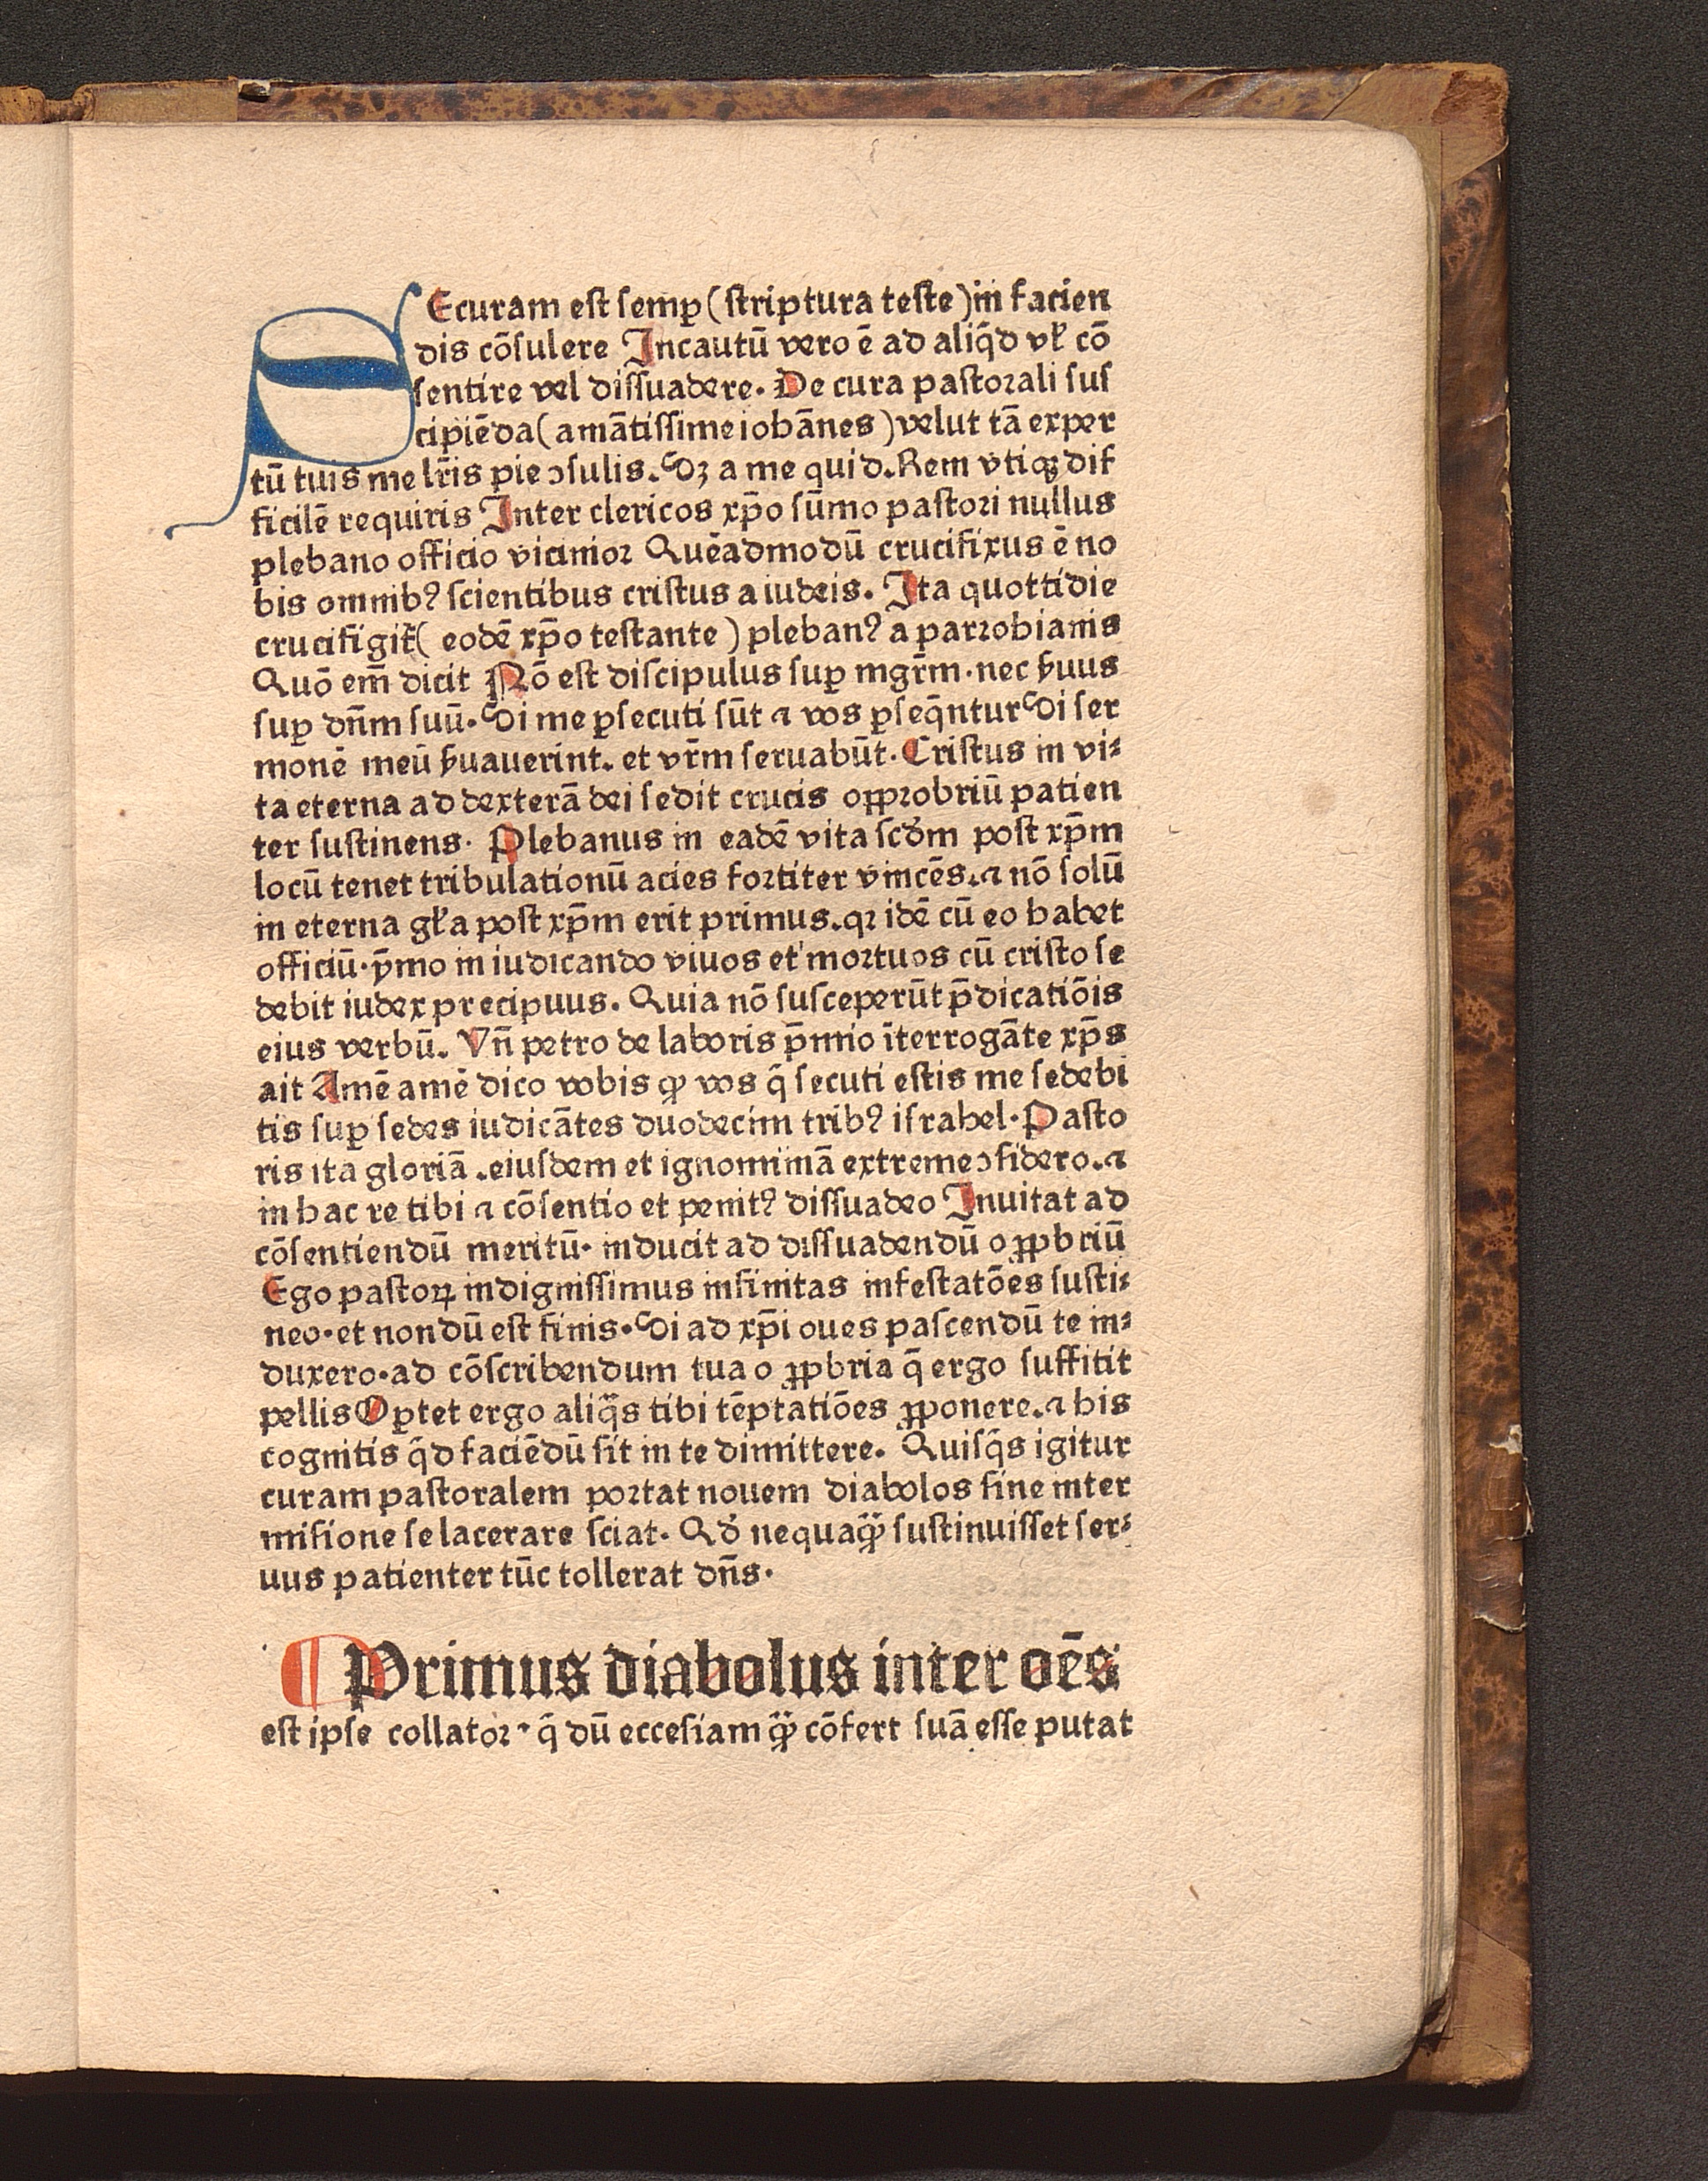 SEcuram est semꝑ (scriptura teste) in facien
dis cōsulere Incautū vero ē ad aliq̄d vl' cō
sentire vel dissuadere. De cura pastorali sus
cipiēda (amātissime iohānes) velut tā exper
tū tuis me lr̄is pie ꝯsulis. Sꝫ a me quid. Rem vtiqꝫ dif
ficilē requiris Inter clericos xp̄o sūmo pastori nullus
plebano officio vicinior Quēadmodū crucifixus ē no
bis omnibꝰ scientibus cristus a iudeis. Ita quottidie
crucifigit̄ (eodē xp̄o testante) plebanꝰ a parrohianis
Quō em̄ dicit Nō est discipulus suꝑ mgr̄m. nec ẜuus
suꝑ dn̄m suū. Si me ꝑsecuti sūt ⁊ vos ꝑseq̄ntur Si ser
monē meū ẜuauerint. et vr̄m seruabūt. Cristus in vi⸗
ta eterna ad dexterā dei sedit crucis opꝓrobriū patien
ter sustinens. Plebanus in eadē vita scd'm post xp̄m
locū tenet tribulationū acies fortiter vincēs. ⁊ nō solū
in eterna gl'a post xp̄m erit primus. qꝛ idē cū eo habet
officiū. ymo in iudicando viuos et mortuos cū cristo se
debit iudex precipuus. Quia nō susceperūt p̄dicatiōis
eius verbū. Vn̄ petro de laboris p̄mio īterrogāte xp̄s
ait Amē amē dico vobis ꝙ vos q̄ secuti estis me sedebi
tis suꝑ sedes iudicātes duodecim tribꝰ israhel. Pasto
ris ita gloriā. eiusdem et ignominiā extreme ꝯfidero. ⁊
in hac re tibi ⁊ cōsentio et penitꝰ dissuadeo Inuitat ad
cōsentiendū meritū. inducit ad dissuadendū opꝓbriū
Ego pastoꝝ indignissimus infinitas infestatōes susti⸗
neo. et nondū est finis. Si ad xp̄i oues pascendū te in⸗
duxero. ad cōscribendum tua opꝓbria q̄ ergo suffitit
pellis Oꝑtet ergo aliq̄s tibi tēptatiōes ꝓponere. ⁊ his
cognitis q̄d faciēdū sit in te dimittere. Quisq̄s igitur
curam pastoralem portat nouem diabolos sine inter
misione se lacerare sciat. Qd' nequaꝙ̄ sustinuisset ser⸗
uus patienter tūc tollerat dn̄s.
¶ Primus diabolus inter oēs
est ipse collator. q̄ dū eccesiam ꝙ̄ cōfert suā esse putat